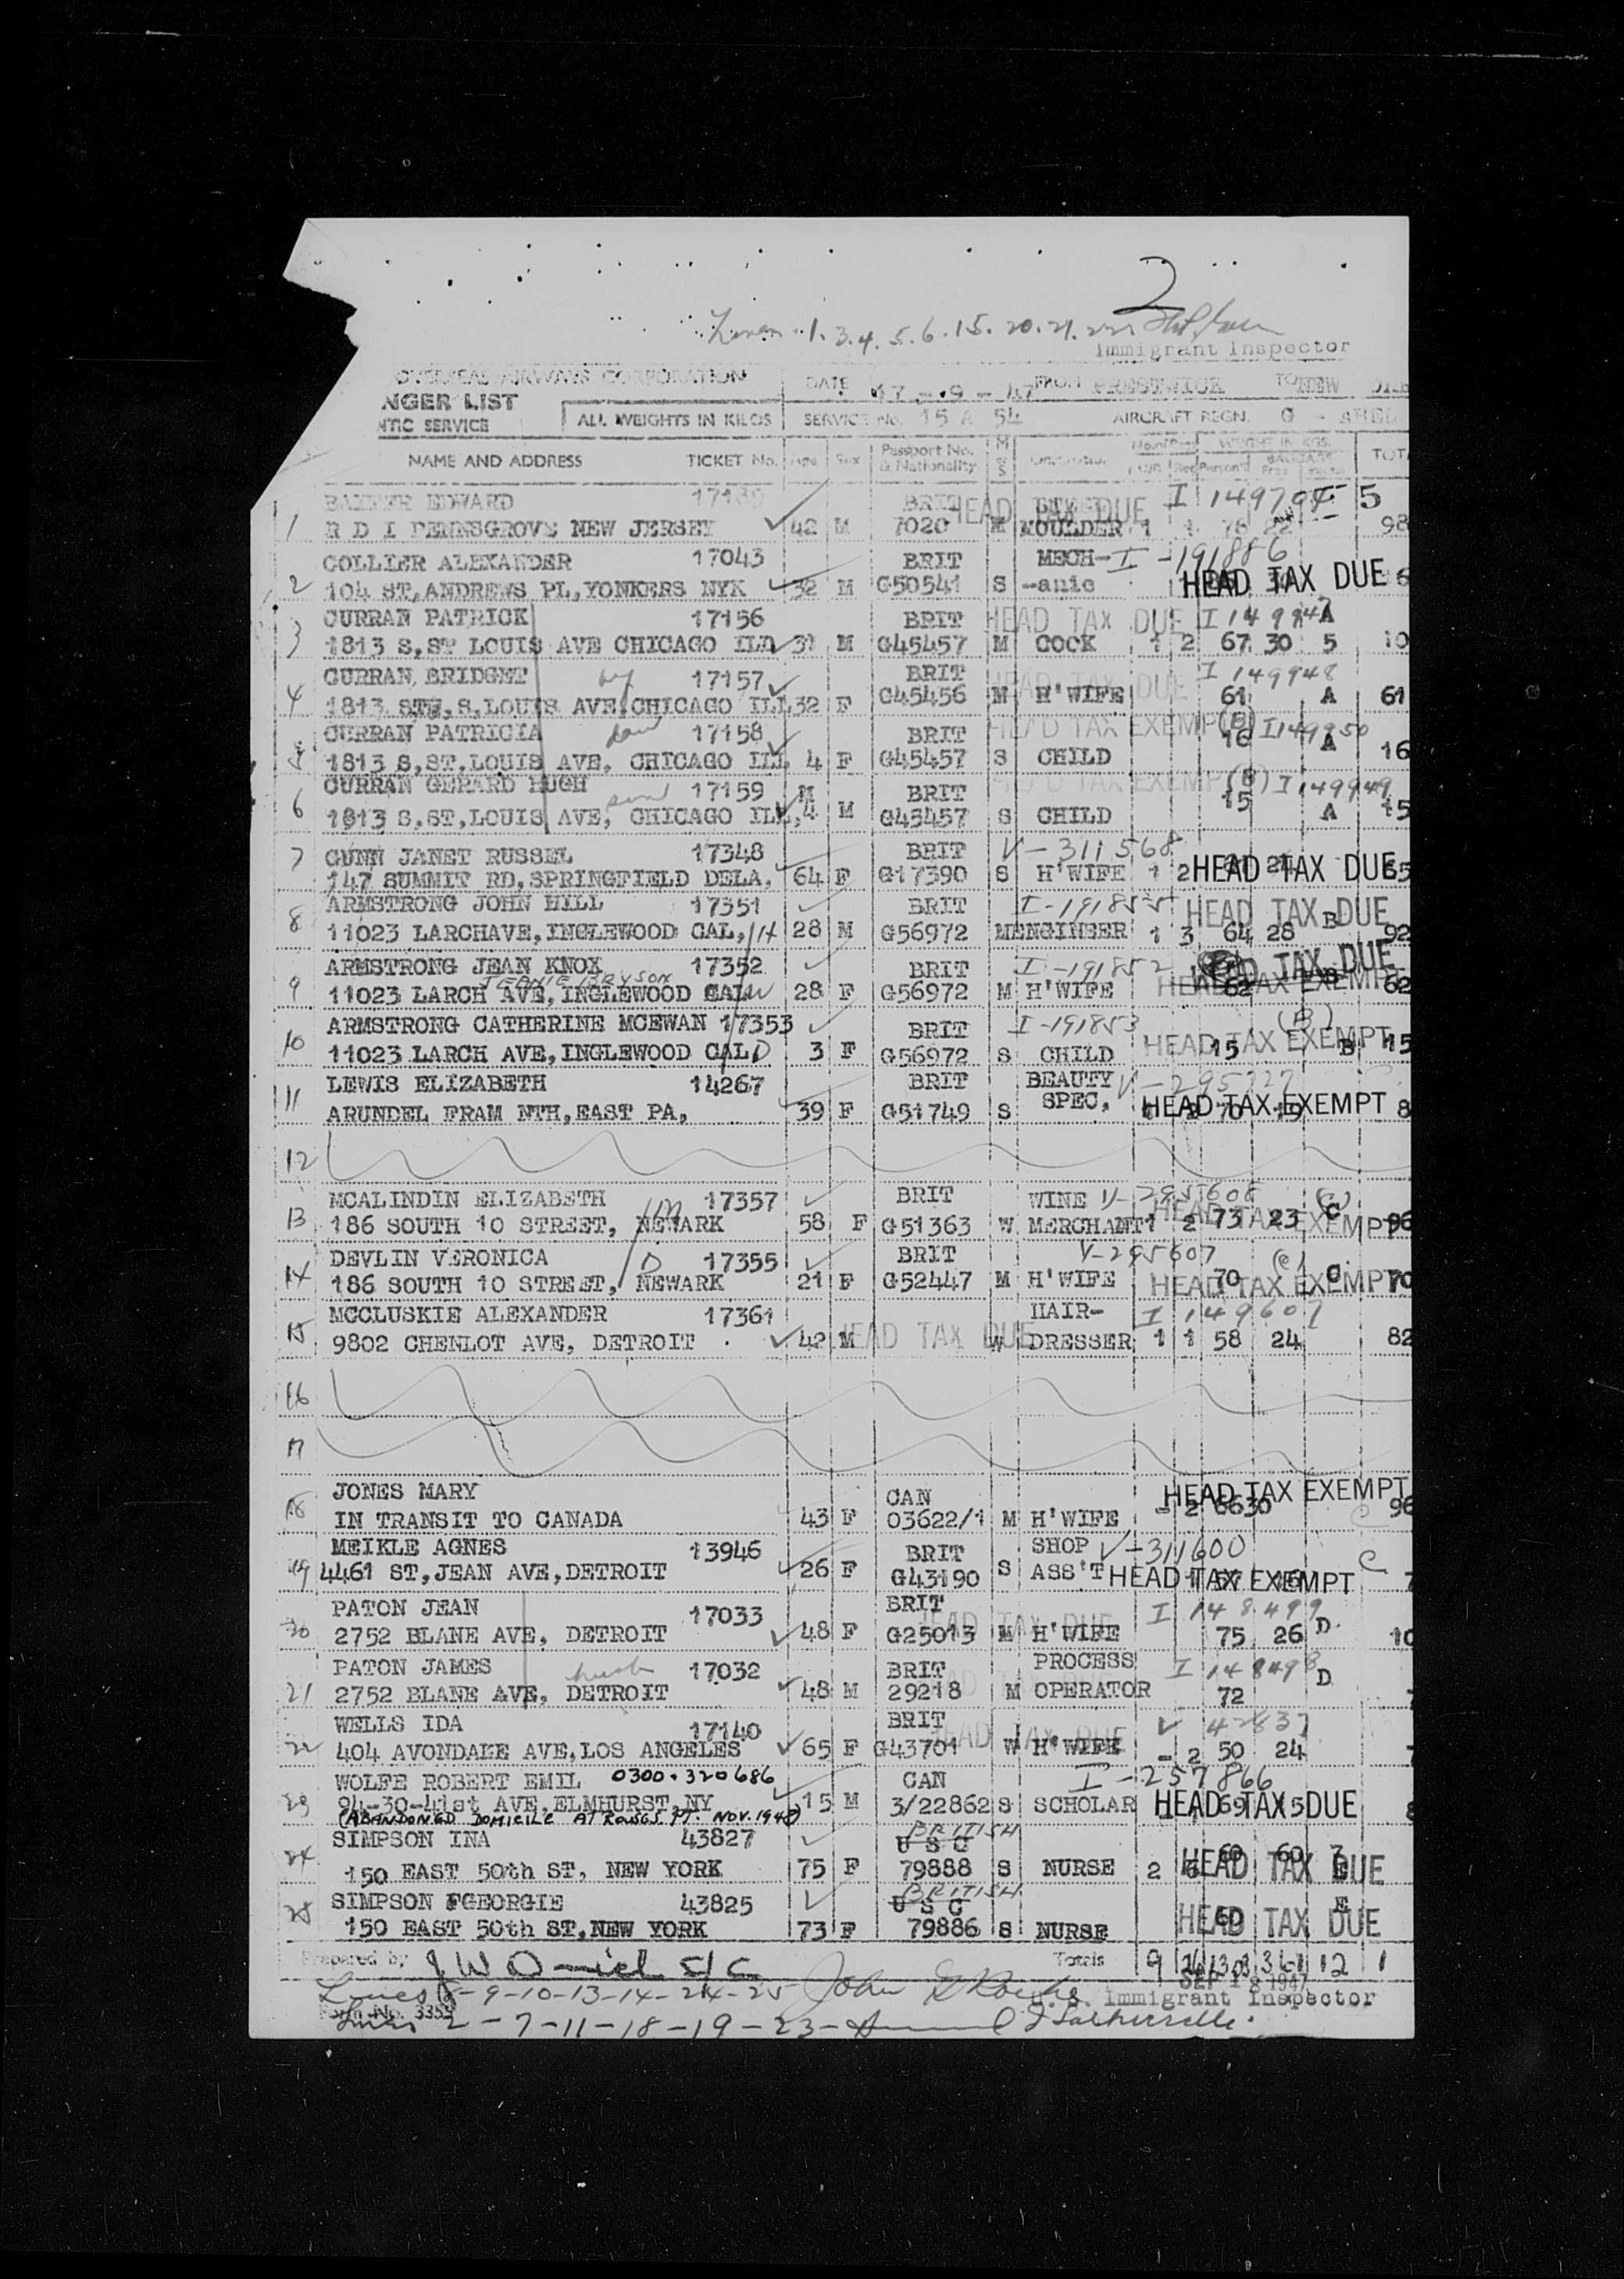 2
1. 3. 4. 5. 6. 15. 20. 21. 22
Immigrant Inspector
OVERSEAS AIRWAYS CORPORATION DATE 17 - 9 - 47 FROM PRESTWICK TO NEW
NGER LIST
NTIC SERVICE ALL WEIGHTS IN KILOS SERVICE No. 15 A 54 AIRCRAFT REGN. G -
NAME AND ADDRESS TICKET No. Age Sex Passport No. & Nationality M W S Occupation WEIGHT IN KGS. TOT
EDWARD BRIT HEAD TAX DUE I 5
1 R D I PENNSGROVE NEW JERSEY 42 M 7020 M MOULDER 1 1 98
COLLIER ALEXANDER 17043 BRIT MECH- I-191886
2 104 ST,ANDREWS PL,YONKERS NYK 32 M G50541 S -anic HEAD TAX DUE 6
CURRAN PATRICK 17156 BRIT HEAD TAX DUE I A
3 1813 S,ST LOUIS AVE CHICAGO ILL M G45457 M COCK 1 2 67 30 5 10
CURRAN BRIDGET 17157 BRIT HEAD TAX DUE I 149948
4 1813 S,LOUIS AVE CHICAGO ILL 32 F G45456 M H'WIFE 61 A 61
CURRAN PATRICIA 17158 BRIT HEAD TAX EXEMP (B) I149950
5 1813 S,ST,LOUIS AVE, CHICAGO ILL 4 F G45457 S CHILD 16 A 16
CURRAN GERARD HUGH son 17159 M BRIT HEAD TAX EXEMP (B) I149949
6 1813 S,ST,LOUIS AVE, CHICAGO ILL, 4 M G45457 S CHILD 15 A 15
7 GUNN JANET RUSSEL 17348 BRIT V-311568
147 SUMMIT RD,SPRINGFIELD DELA, 64 F G17390 S H'WIFE 1 2 HEAD TAX DUE 65
ARMSTRONG JOHN HILL 17351 BRIT HEAD TAX DUE B
8 11023 LARCHAVE,INGLEWOOD CAL, H 28 M G56972 M ENGINEER 1 3 64 28 92
ARMSTRONG JEAN KNOX 17352 BRIT I-191852 HEAD TAX DUE
JEANIE BRYSON
9 11023 LARCH AVE,INGLEWOOD CAL W 28 F G56972 M H'WIFE HEAD TAX EXEMPT 62 62
ARMSTRONG CATHERINE MCEWAN 17353 BRIT I-191853 (B)
10 11023 LARCH AVE,INGLEWOOD CAL D 3 F G56972 S CHILD HEAD TAX EXEMPT 15 B 15
LEWIS ELIZABETH 14267 BRIT BEAUTY V-295727
11 ARUNDEL FRAM NTH,EAST PA, 39 F G51749 S SPEC, HEAD TAX EXEMPT 8
12
MCALINDIN ELIZABETH 17357 BRIT WINE V-295608 (C)
13 186 SOUTH 10 STREET, NEWARK M 58 F G51363 W MERCHANT 1 2 73 23 C HEAD TAX EXEMPT 96
DEVLIN VERONICA D 17355 BRIT V-295607 (C)
14 186 SOUTH 10 STREET, NEWARK 21 F G52447 M H'WIFE HEAD TAX EXEMPT 70 C 70
MCCLUSKIE ALEXANDER 17361 HAIR- I 149607
15 9802 CHENLOT AVE, DETROIT 42 M HEAD TAX DUE W DRESSER 1 1 58 24 82
16
17
JONES MARY CAN HEAD TAX EXEMPT
18 IN TRANSIT TO CANADA 43 F 03622/1 M H'WIFE - 2 66 30 96
MEIKLE AGNES 13946 BRIT SHOP V-311600 C
19 4461 ST,JEAN AVE,DETROIT 26 F G43190 S ASS'T HEAD TAX EXEMPT 7
PATON JEAN 17033 BRIT HEAD TAX DUE I 148499
20 2752 BLANE AVE, DETROIT 48 F G25013 M H'WIFE 75 26 D 10
PATON JAMES husb 17032 BRIT PROCESS I 148498 D
21 2752 BLANE AVE, DETROIT 48 M 29218 M OPERATOR 72 7
WELLS IDA 17140 BRIT HEAD TAX DUE V 42837
22 404 AVONDALE AVE,LOS ANGELES 65 F G43701 W H'WIFE - 2 50 24 7
WOLFE ROBERT EMIL 0300-320686 CAN I-257866
23 94-30-41st AVE,ELMHURST,NY 15 M 3/22862 S SCHOLAR HEAD TAX DUE 8
(ABANDONED DOMICILE AT ROUSES PT. NOV. 1948)
SIMPSON INA 43827 U S C BRITISH
24 150 EAST 50th ST, NEW YORK 75 F 79888 S NURSE 2 6 60 60 HEAD TAX DUE
SIMPSON GEORGIE 43825 U S C BRITISH E
25 150 EAST 50th ST,NEW YORK 73 F 79886 S NURSE 60 HEAD TAX DUE
Prepared by Totals 9 12 1
SEP 18 1947
Lines 8-9-10-13-14-24-25 John U.S. Immigrant Inspector
Form No. 3353
Lines 2-7-11-18-19-23-